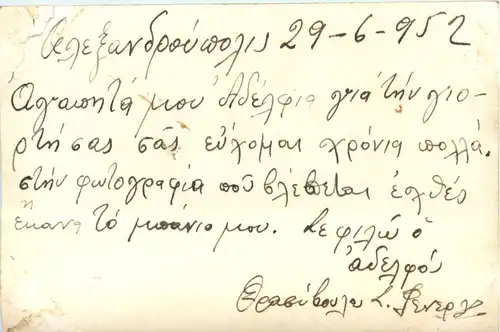 Αλεξανδρούπολις 29-6-952
Ἀγαπητά μου Ἀδέλφια γιά τήν γιο-
ρτή σας σᾶς εὔχομαι χρόνια πολλά.
στήν φωτογραφία πού βλέπεται ἐχθές
ἔκανα τό μπάνιο μου. Σε φιλῶ ὁ
ἀδελφός
Θρασύβουλος Σ.